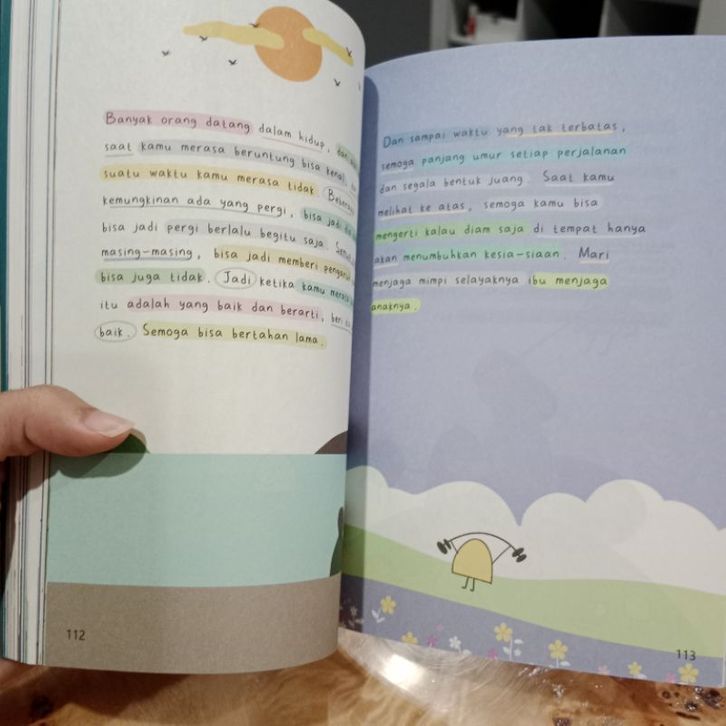 Banyak orang datang dalam hidup,
saat kamu merasa beruntung bisa kenal
suatu waktu kamu merasa tidak.
kemungkinan ada yang pergi, bisa jadi
bisa jadi pergi berlalu begitu saja.
masing-masing, bisa jadi memberi
bisa juga tidak. Jadi ketika kamu merasa
itu adalah yang baik dan berarti, beri
baik. Semoga bisa bertahan lama.
112
Dan sampai waktu yang tak terbatas,
semoga panjang umur setiap perjalanan
dan segala bentuk juang. Saat kamu
melihat ke atas, semoga kamu bisa
mengerti kalau diam saja di tempat hanya
akan menumbuhkan kesia-siaan. Mari
menjaga mimpi selayaknya ibu menjaga
anaknya.
113